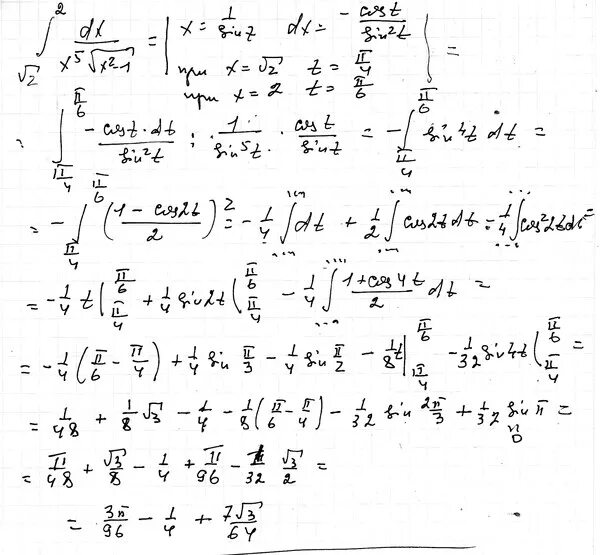 ∫_{√2}^{2} dx / (x⁵√(x²−1)) = | x = 1/sin t   dx = −cos t/sin²t
при x = √2   t = π/4
при x = 2   t = π/6 | =
= ∫_{π/4}^{π/6} −cos t · dt / sin²t : 1/sin⁵t · cos t/sin t = −∫_{π/4}^{π/6} sin⁴t dt =
= −∫_{π/4}^{π/6} ((1 − cos 2t)/2)² = −1/4 ∫ dt + 1/2 ∫ cos 2t dt − 1/4 ∫ cos² 2t dt =
= −1/4 t |_{π/4}^{π/6} + 1/4 sin 2t |_{π/4}^{π/6} − 1/4 ∫ (1 + cos 4t)/2 dt =
= −1/4 (π/6 − π/4) + 1/4 sin π/3 − 1/4 sin π/2 − 1/8 t |_{π/4}^{π/6} − 1/32 sin 4t |_{π/4}^{π/6} =
= 1/48 + 1/8 √3 − 1/4 − 1/8 (π/6 − π/4) − 1/32 sin 2π/3 + 1/32 sin π =
0
= π/48 + √3/8 − 1/4 + π/96 − 1/32 √3/2 =
= 3π/96 − 1/4 + 7√3/64